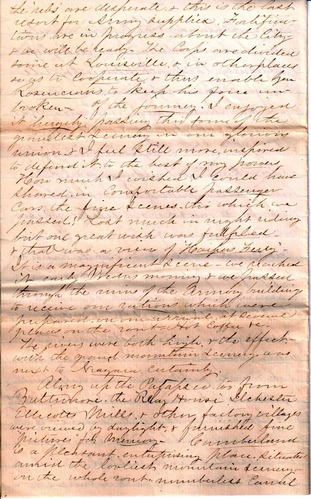 The rebs are desperate & this is the last
resort for Army supplies. Fortifica-
tions are in progress about the City
& we will be ready. The Corps are divided
some at Louisville, & in other places
so as to cooperate, & thus enable Gen
Rosecrans, to keep his force un-
broken — Of the journey I enjoyed
it hugely, passing thro some of the
grandest scenery in our glorious
union & I feel still more inspired
to defend it to the best of my powers
How much I wished I could have
showed in comfortable passenger
Cars, the fine scenes thro which we
passed. Lost much in night riding
but one great wish was fulfilled
& that was a view of Harpers Ferry.
It is a magnificent scene — we reached
it early morning & we passed
through the ruins of the Armory building
to receive our rations which were
prepared on our account at several
places on the road to Hot Coffee &c.
The rivers were both high, & the effect
with the grand mountain scenery was
next to Niagara certainly.
Along up the Patapsco, as from
Baltimore, the Relay House Ilchester
Ellicotts Mills, & other factory villages
were viewed by daylight, & furnished fine
pictures for memory — Cumberland
is a pleasant, enterprising place, situated
amid the loveliest mountain scenery
on the whole route — numberless Canal